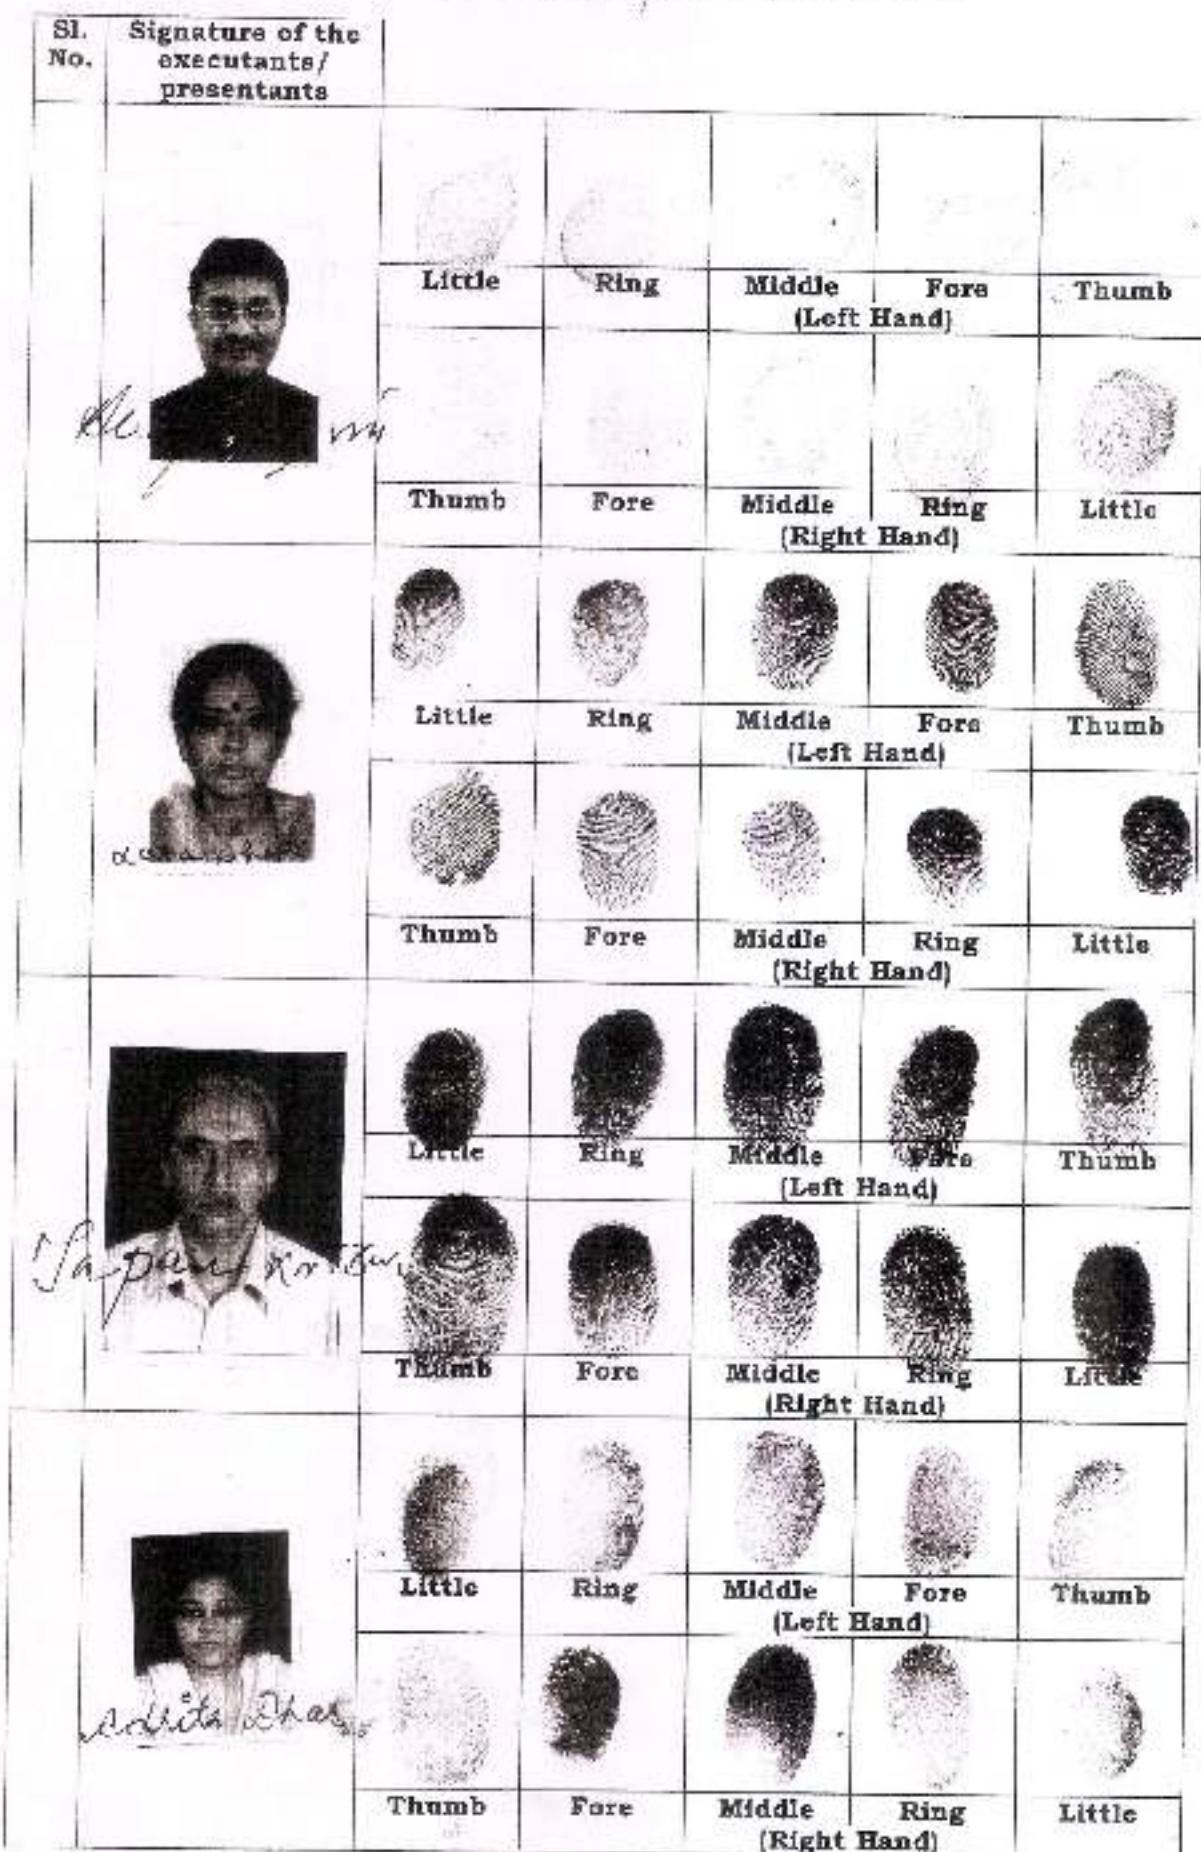 Sl. No.
Signature of the executants/ presentants
Little Ring Middle Fore Thumb
(Left Hand)
Thumb Fore Middle Ring Little
(Right Hand)
Little Ring Middle Fore Thumb
(Left Hand)
Thumb Fore Middle Ring Little
(Right Hand)
Little Ring Middle Fore Thumb
(Left Hand)
Tapan
Thumb Fore Middle Ring Little
(Right Hand)
Little Ring Middle Fore Thumb
(Left Hand)
Dhar
Thumb Fore Middle Ring Little
(Right Hand)